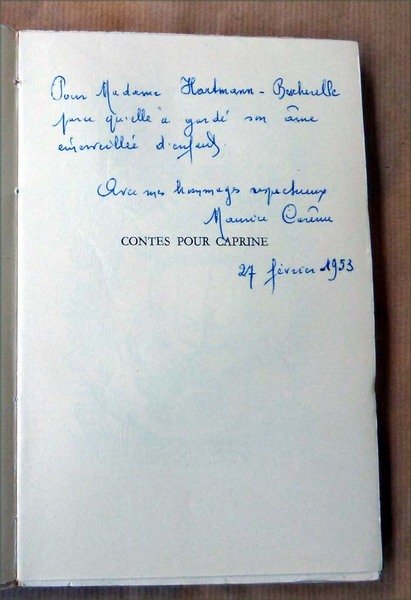 Pour Madame Hartmann - Becherelle
parce qu'elle a gardé son âme
émerveillée d'enfant.
Avec mes hommages respectueux
Maurice Carême
CONTES POUR CAPRINE
27 février 1953